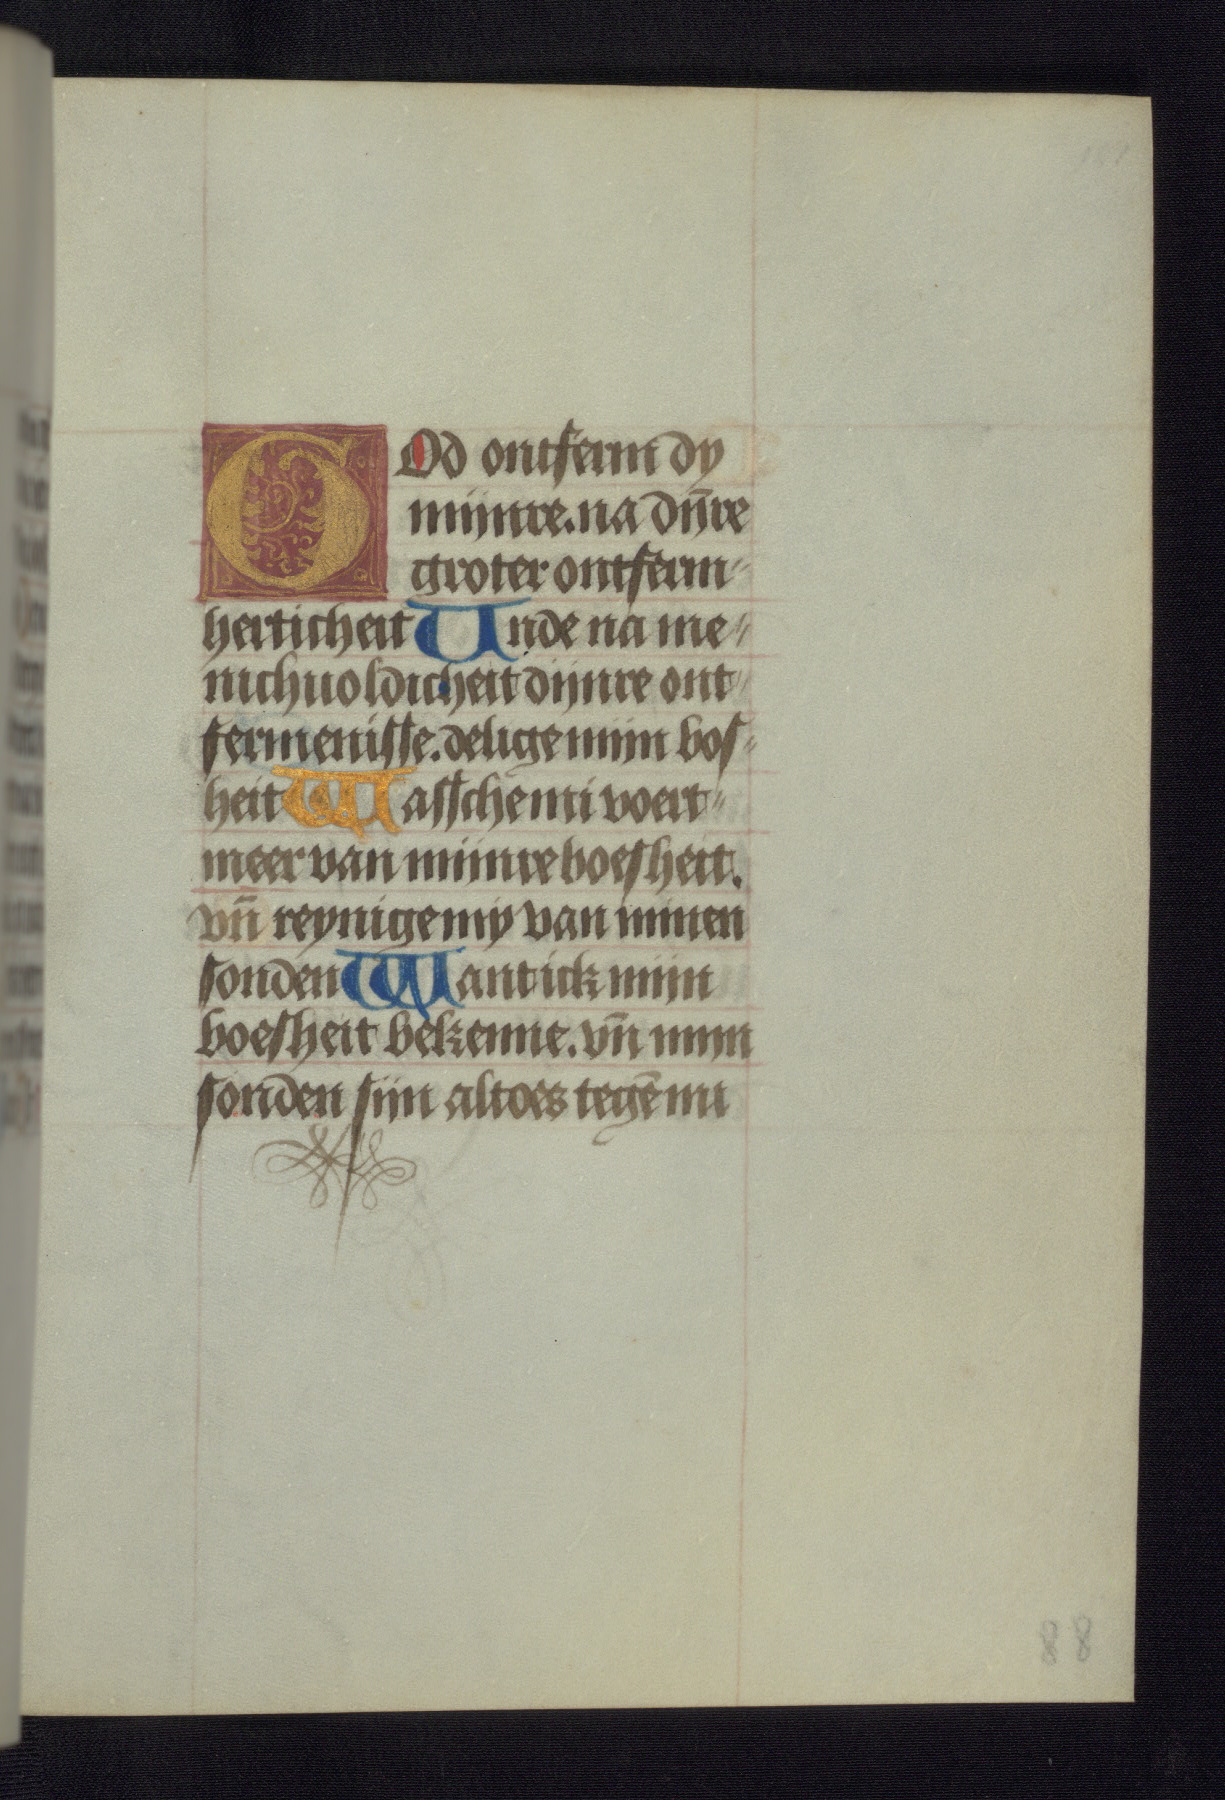 GOd ontferm dy
mijnre. na dijn̄re
groter ontferm-
herticheit Vnde na me-
nichuoldicheit dijnre ont-
fermenisse. delige mijn bos-
heit Wassche mi voert-
meer van mijnre boesheit.
vn̄ reynige my van minen
sonden Want ick mijn
boesheit bekenne. vn̄ mijn
sonden sijn altoes tegē mi
88